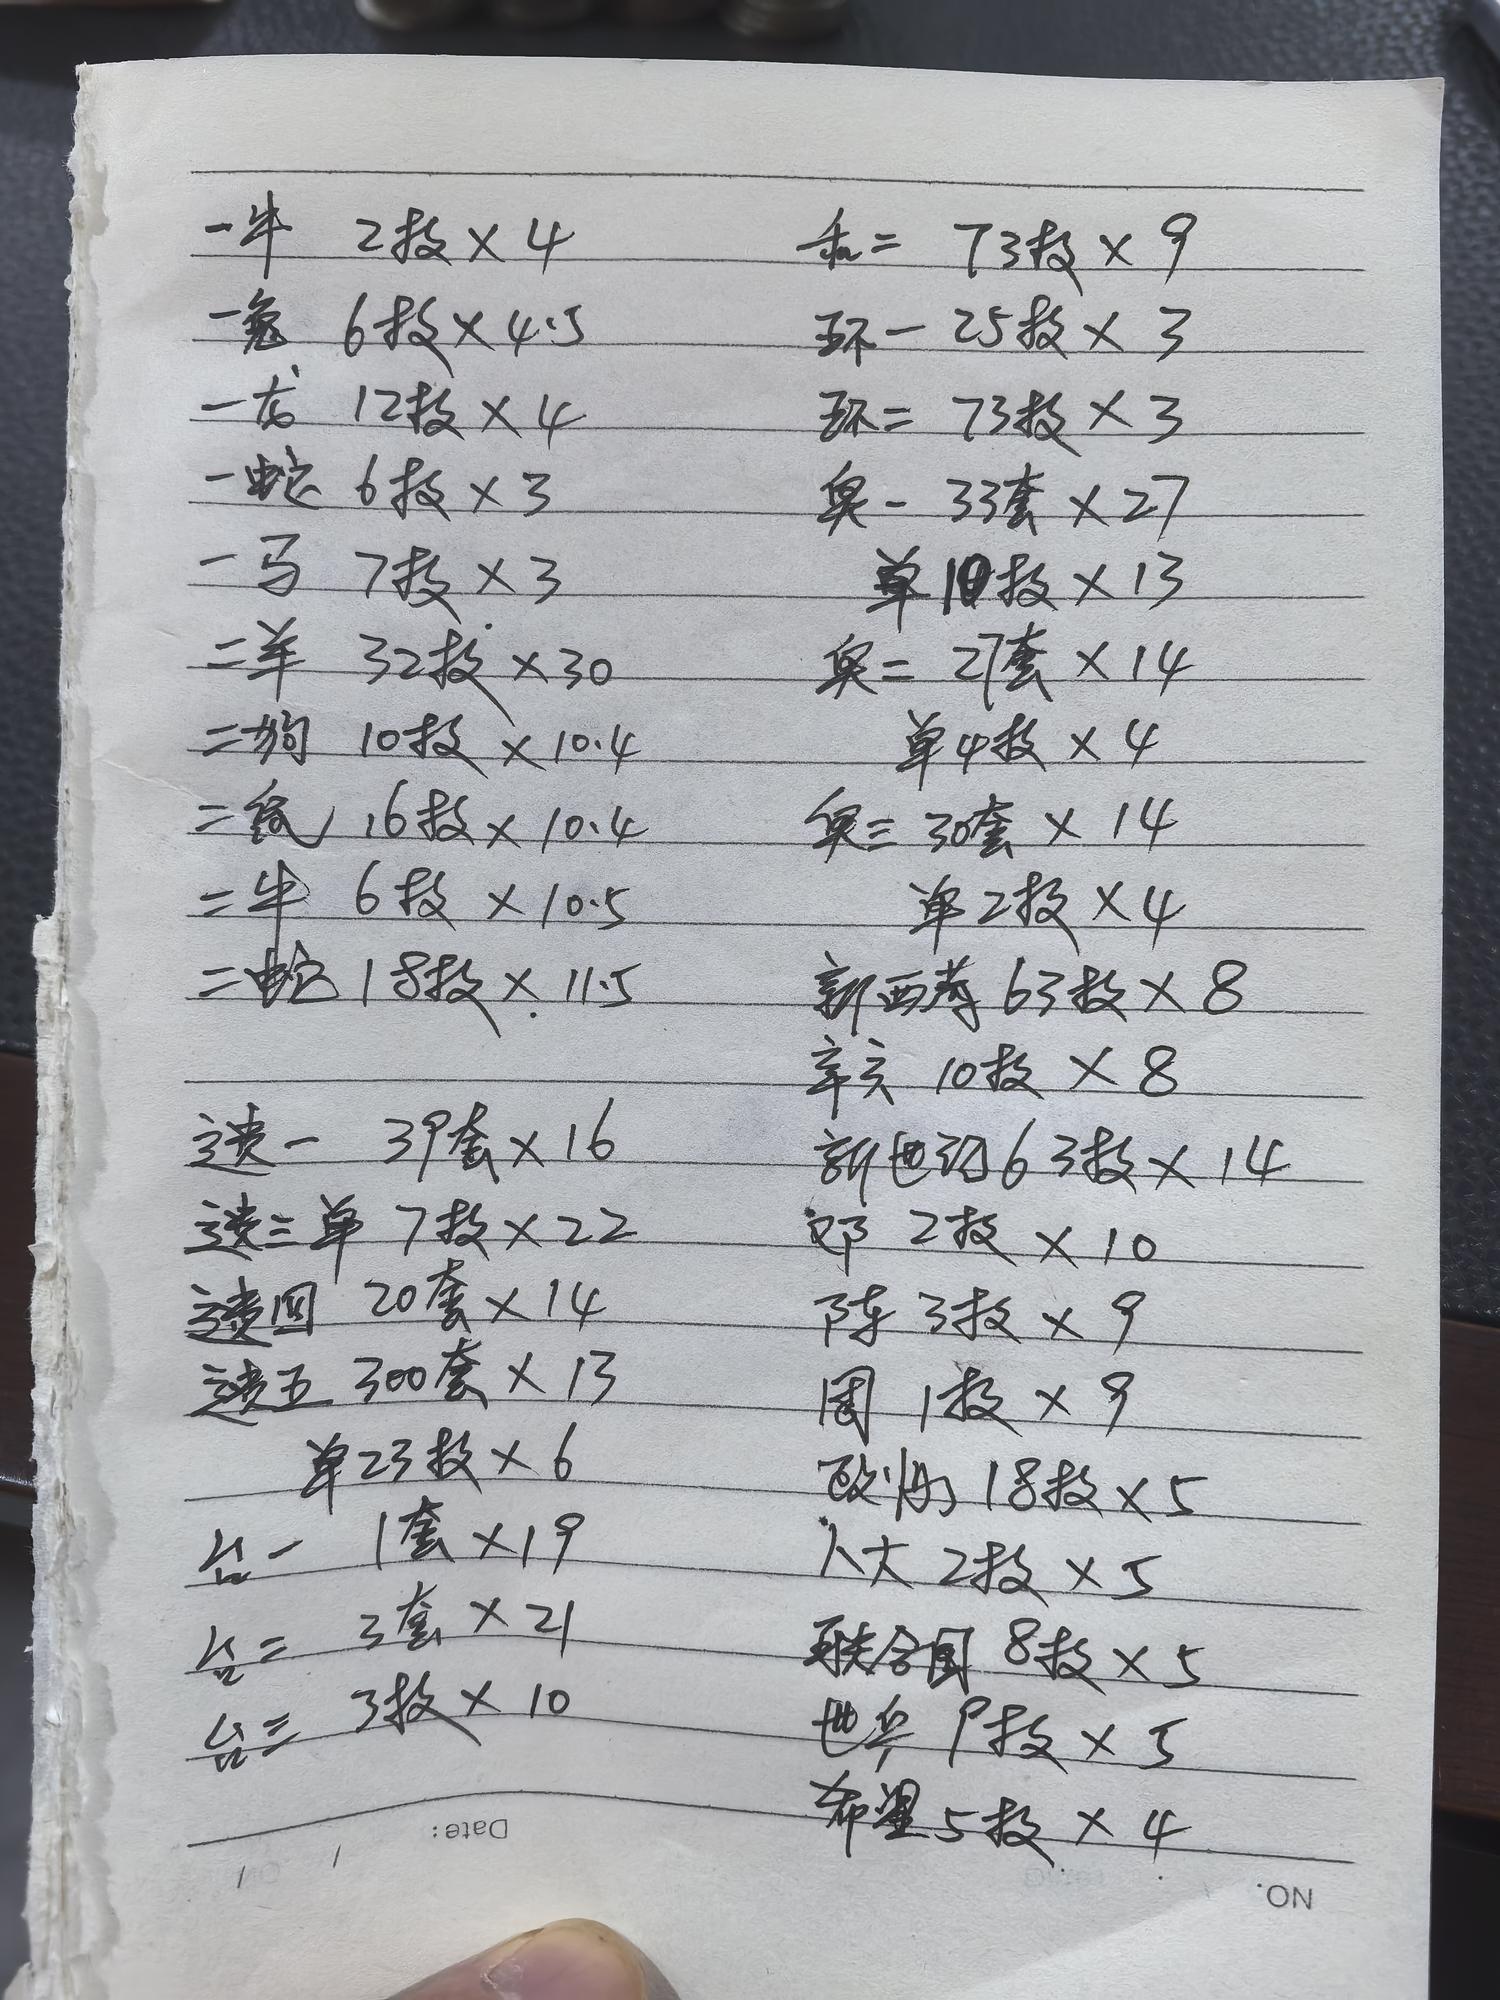 一牛 2枚×4
一兔 6枚×4.5
一龙 12枚×4
一蛇 6枚×3
一马 7枚×3
二羊 32枚×30
二狗 10枚×10.4
二鼠 16枚×10.4
二牛 6枚×10.5
二蛇 18枚×11.5
遗一 39套×16
遗三单 7枚×22
遗四 20套×14
遗五 300套×13
单23枚×6
台一 1套×19
台二 3套×21
台三 3枚×10
Date:
和二 73枚×9
环一 25枚×3
环二 73枚×3
奥一 33套×27
单10枚×13
奥二 27套×14
单4枚×4
奥三 30套×14
单2枚×4
新西藏 63枚×8
辛亥 10枚×8
新世纪 63枚×14
邓 2枚×10
陈 3枚×9
周 1枚×9
政协 18枚×5
人大 2枚×5
联合国 8枚×5
世乒 9枚×5
希望 5枚×4
NO.